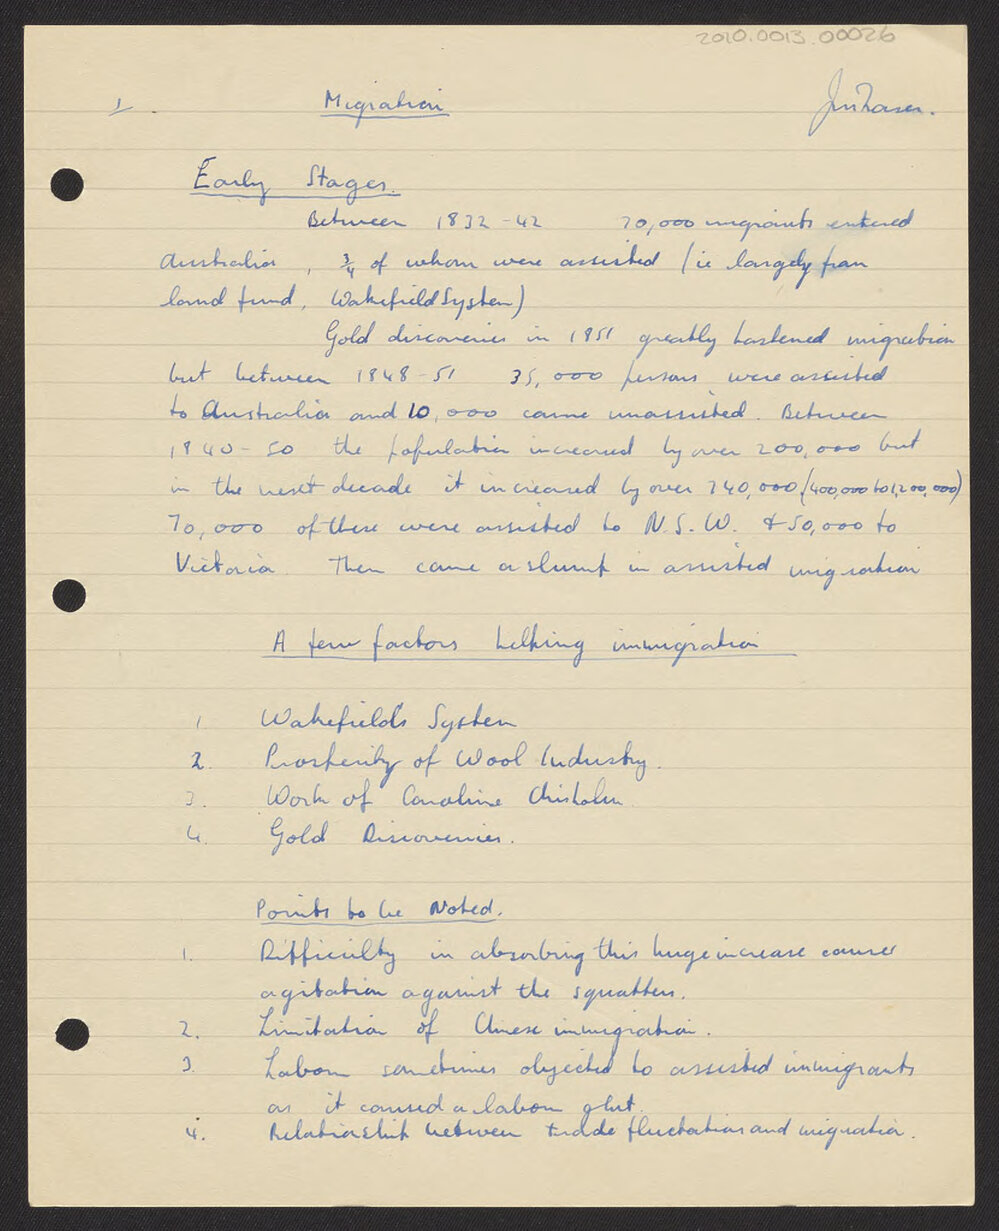 2010.0013.00026
1. Migration
Early Stages.
Between 1832-42 70,000 migrants entered
Australia, ¾ of whom were assisted (ie largely from
land fund, Wakefield System)
Gold discoveries in 1851 greatly hastened migration
but between 1848-51 35,000 persons were assisted
to Australia and 10,000 came unassisted. Between
1840-50 the population increased by over 200,000 but
in the next decade it increased by over 740,000 (400,000 to 1,200,000)
70,000 of these were assisted to N.S.W. & 50,000 to
Victoria. Then came a slump in assisted migration
A few factors helping immigration
1. Wakefield's System
2. Prosperity of Wool Industry.
3. Work of Caroline Chisholm.
4. Gold Discoveries.
Points to be Noted.
1. Difficulty in absorbing this huge increase causes
agitation against the squatters.
2. Limitation of Chinese immigration.
3. Labour sometimes objected to assisted immigrants
as it caused a labour glut.
4. Relationship between trade fluctations and migration.